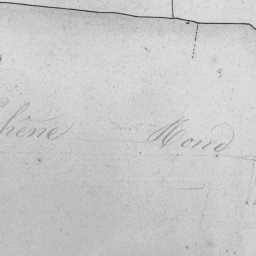 Chêne Rond